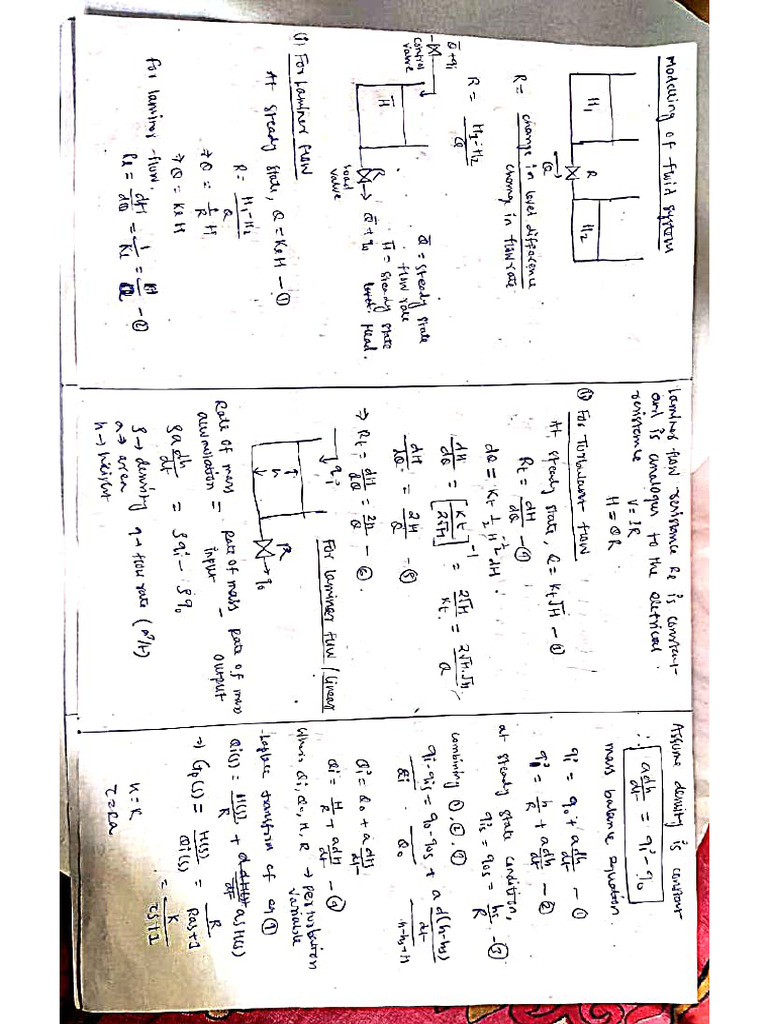 Modelling of fluid system
H₁
R
Q
H₂
R = change in level difference
change in flow rate
R = H₁ - H₂
Q
Q̄ + qi
control
valve
H̄
R
load
valve
Q̄ + q₀
Q̄ = steady state
flow rate
H̄ = steady state
Head.
(i) For Laminer flow
At steady state, Q = KₗH — ①
R = H₁ - H₂
Q
⇒ Q = 1/R H
⇒ Q = Kₗ H
for laminer flow.
Rₗ = dH/dQ = 1/Kₗ = H/Q — ②
Laminer flow resistance Rₗ is constant
and is analogus to the eletrical
resistance
V = IR
H = QR
(ii) For Turbulent flow
At steady state, Q = Kt√H — ③
Rt = dH/dQ — ④
dQ = Kt 1/2 H^-1/2 dH.
dH/dQ = [Kt/2√H]^-1 = 2√H/Kt = 2√H.√H/Q
dH/dQ = 2H/Q — ⑤
⇒ Rt = dH/dQ = 2H/Q — ⑥
For Laminer flow / linear
qi
h
R
q₀
Rate of mass accumulation = Rate of mass input - Rate of mass output
ρa dh/dt = ρqi - ρq₀
ρ → density q → flow rate
a → area
h → height
Assume density is constant
∴ adh/dt = qi - q₀
mass balance equation.
qi = q₀ + adh/dt — ①
qi = h/R + adh/dt — ②
at steady state condition,
qis = q₀s = hs/R — ③
combining ①, ②, ③
qi - qis = q₀ - q₀s + a d(h-hs)/dt
Qi Q₀ h-hs = H
Qi = Q₀ + a dH/dt
Qi = H/R + adH/dt — ④
Where Qi, Q₀, H, R → perturbation
variable
Laplace transform of eq ④
Qi(s) = H(s)/R + as H(s)
⇒ Gp(s) = H(s)/Qi(s) = R/Ras+1
= K/τs+1
K = R
τ = Ra